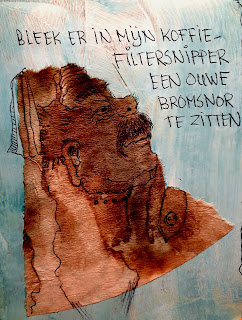 BLEEK ER IN MIJN KOFFIE-
FILTERSNIPPER
EEN OUWE
BROMSNOR
TE ZITTEN